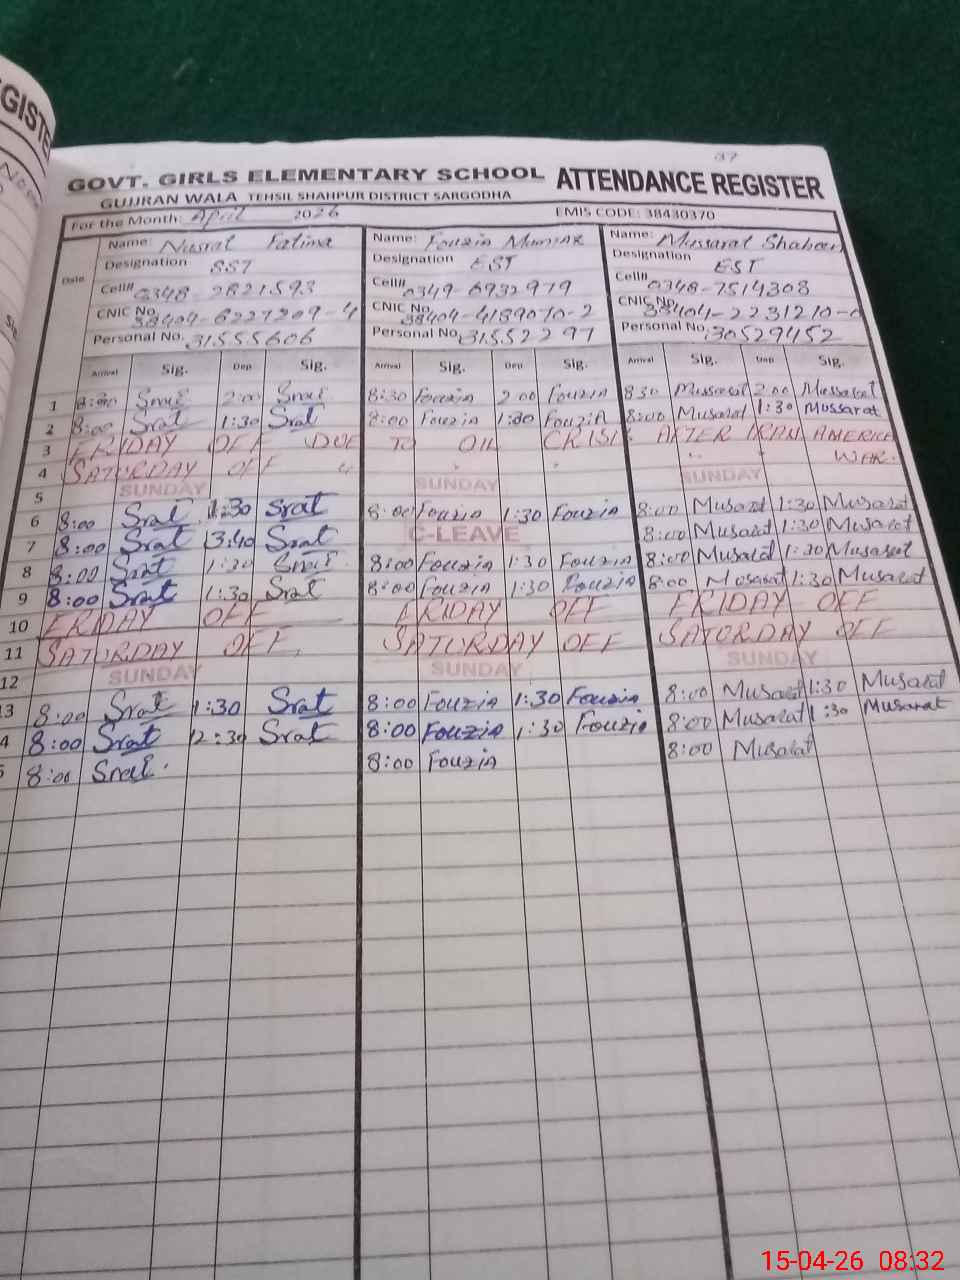 GISTE
37
GOVT. GIRLS ELEMENTARY SCHOOL ATTENDANCE REGISTER
GUJJRAN WALA TEHSIL SHAHPUR DISTRICT SARGODHA
For the Month: April 2026 EMIS CODE: 38430370
Date
Name: Nusrat Fatima Name: Fouzia Mumtaz Name: Mussarat Shaheen
Designation SST Designation EST Designation EST
Cell# 0348-2821593 Cell# 0349-6932979 Cell# 0348-7514308
CNIC No. 38404-6227209-4 CNIC No. 38404-4189070-2 CNIC No. 38404-2231210-0
Personal No. 31555606 Personal No. 31552297 Personal No. 30529452
Arrival Sig. Dep Sig. Arrival Sig. Dep Sig. Arrival Sig. Dep Sig.
1 8:30 Srat 2:00 Srat 8:30 Fouzia 2:00 Fouzia 8:30 Musarat 2:00 Mussarat
2 8:00 Srat 1:30 Srat 8:00 Fouzia 1:30 Fouzia 8:00 Musarat 1:30 Mussarat
3 FRIDAY OFF DUE TO OIL CRISIS AFTER IRAN AMERICA WAR.
4 SATURDAY OFF
5 SUNDAY SUNDAY SUNDAY
6 8:00 Srat 1:30 Srat 8:00 Fouzia 1:30 Fouzia 8:00 Musarat 1:30 Musarat
7 8:00 Srat 3:40 Srat C-LEAVE 8:00 Musarat 1:30 Musarat
8 8:00 Srat 1:30 Srat 8:00 Fouzia 1:30 Fouzia 8:00 Musarat 1:30 Musarat
9 8:00 Srat 1:30 Srat 8:00 Fouzia 1:30 Fouzia 8:00 Musarat 1:30 Musarat
10 FRIDAY OFF FRIDAY OFF FRIDAY OFF
11 SATURDAY OFF. SATURDAY OFF SATURDAY OFF
12 SUNDAY SUNDAY SUNDAY
13 8:00 Srat 1:30 Srat 8:00 Fouzia 1:30 Fouzia 8:00 Musarat 1:30 Musarat
4 8:00 Srat 12:30 Srat 8:00 Fouzia 1:30 Fouzia 8:00 Musarat 1:30 Musarat
5 8:00 Srat. 8:00 Fouzia 8:00 Musarat
15-04-26 08:32